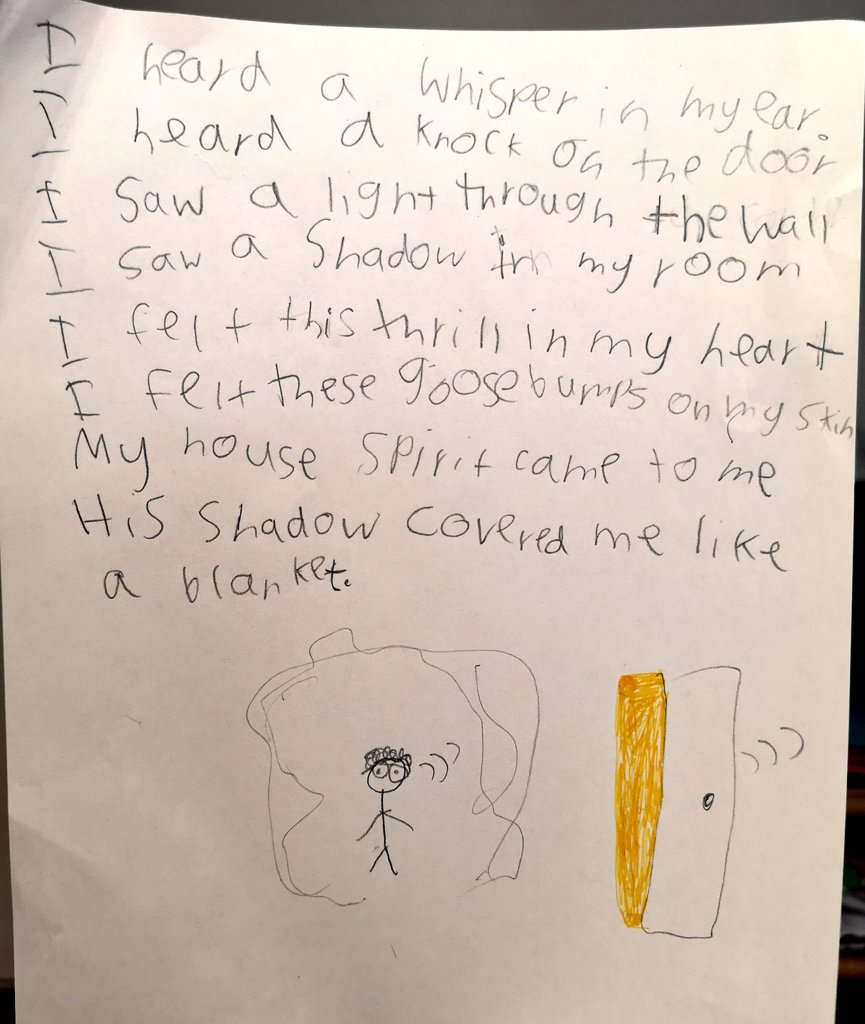 I heard a whisper in my ear.
I heard a knock on the door
I saw a light through the wall
I saw a Shadow in my room
I felt this thrill in my heart
I felt these goosebumps on my skin
My house spirit came to me
His shadow covered me like
a blanket.